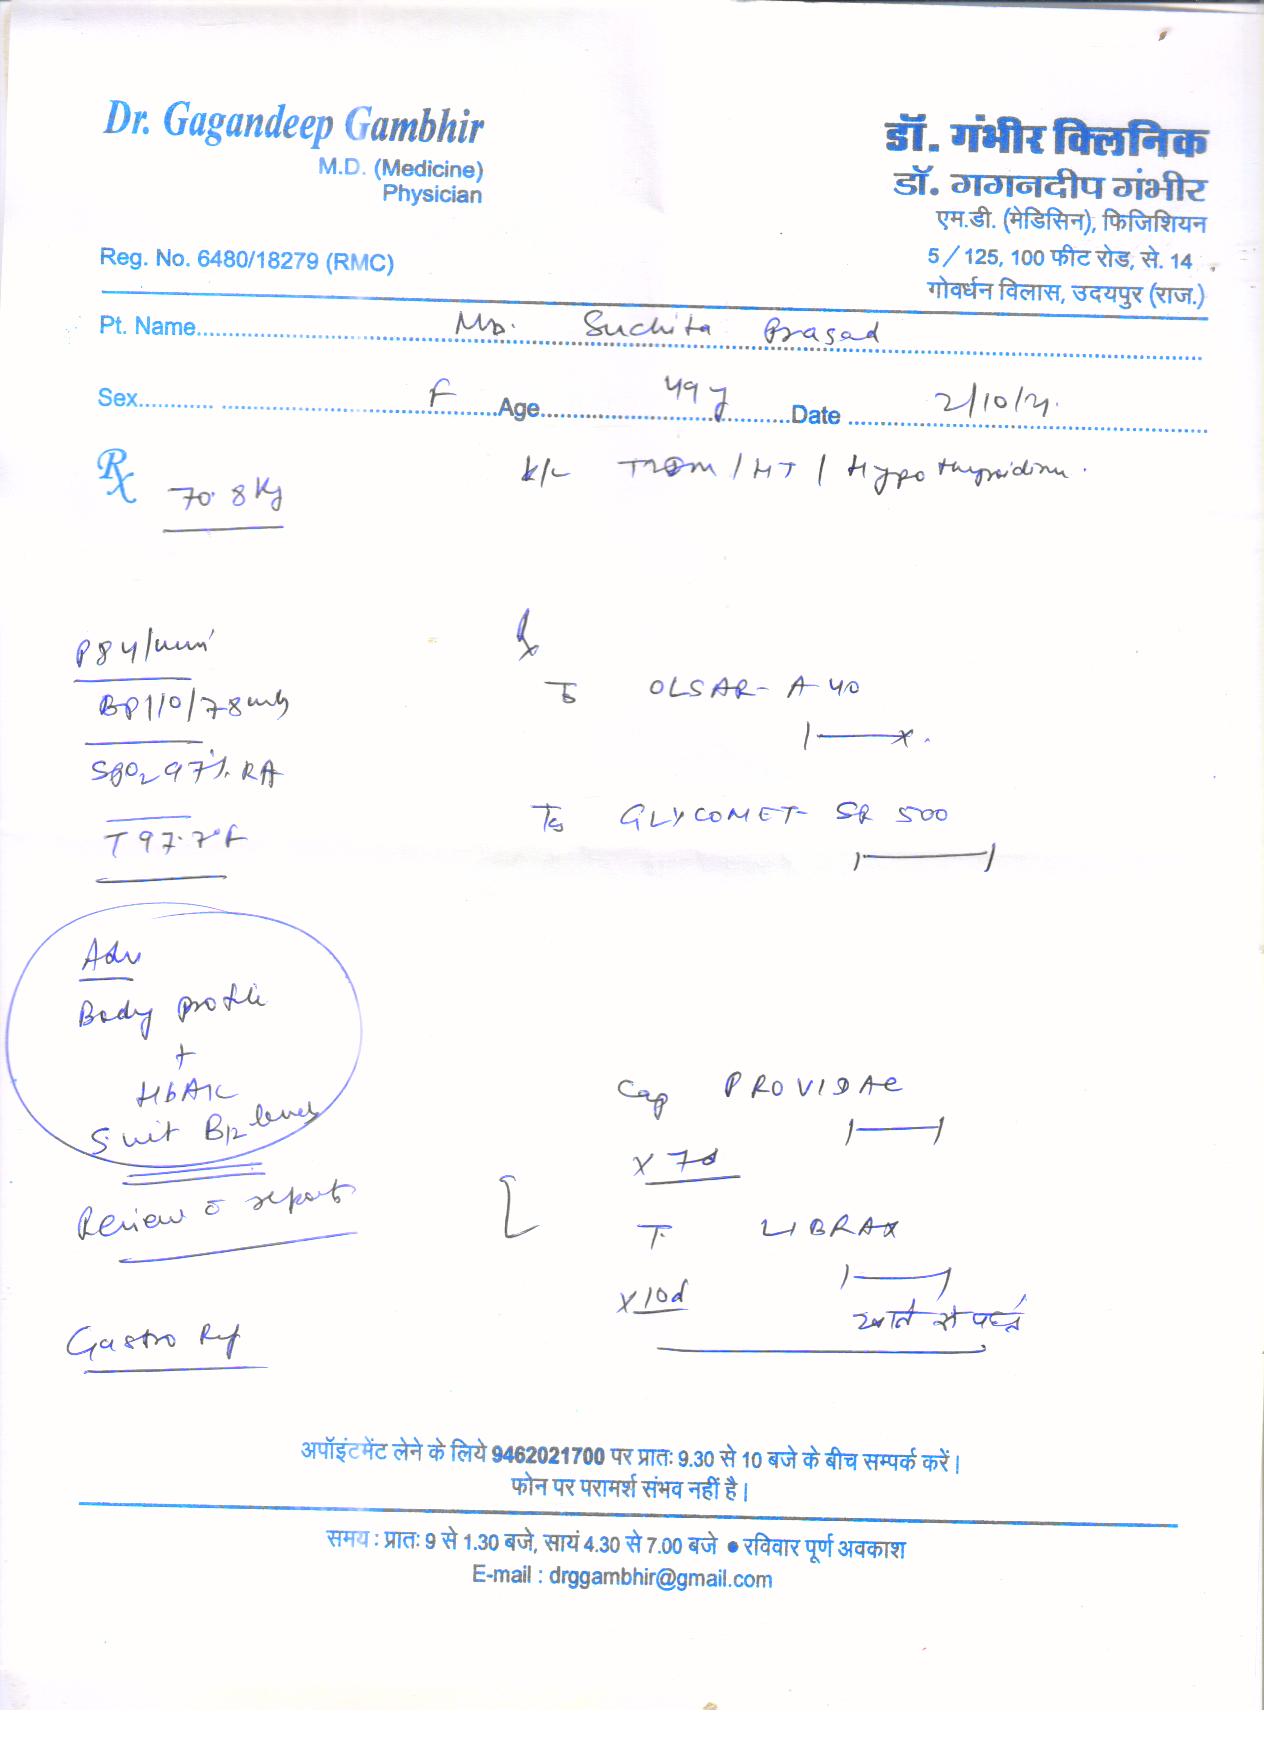 Dr. Gagandeep Gambhir
M.D. (Medicine)
Physician
Reg. No. 6480/18279 (RMC)
डॉ. गंभीर क्लिनिक
डॉ. गगनदीप गंभीर
एम.डी. (मेडिसिन), फिजिशियन
5/125, 100 फीट रोड, से. 14
गोवर्धन विलास, उदयपुर (राज.)
Pt. Name Ms. Suchita Prasad
Sex F Age 49 y Date 2/10/21.
Rx 70.8 Kg
K/c T2DM / HT / Hypothyroidism.
P 84/min
BP 110/78 mmHg
SpO2 97% RA
T 97.7°F
Adv
Body profile
+
HbA1c
S. vit B12 level
Review c̄ reports
Gastro Ref
Rx
Tb OLSAR-A 40
Tb GLYCOMET-SR 500
Cap PROVIDAC
x 7d
T. LIBRAX
x 10d
खाने से पहले
अपॉइंटमेंट लेने के लिये 9462021700 पर प्रातः 9.30 से 10 बजे के बीच सम्पर्क करें।
फोन पर परामर्श संभव नहीं है।
समय : प्रातः 9 से 1.30 बजे, सायं 4.30 से 7.00 बजे ● रविवार पूर्ण अवकाश
E-mail : drggambhir@gmail.com